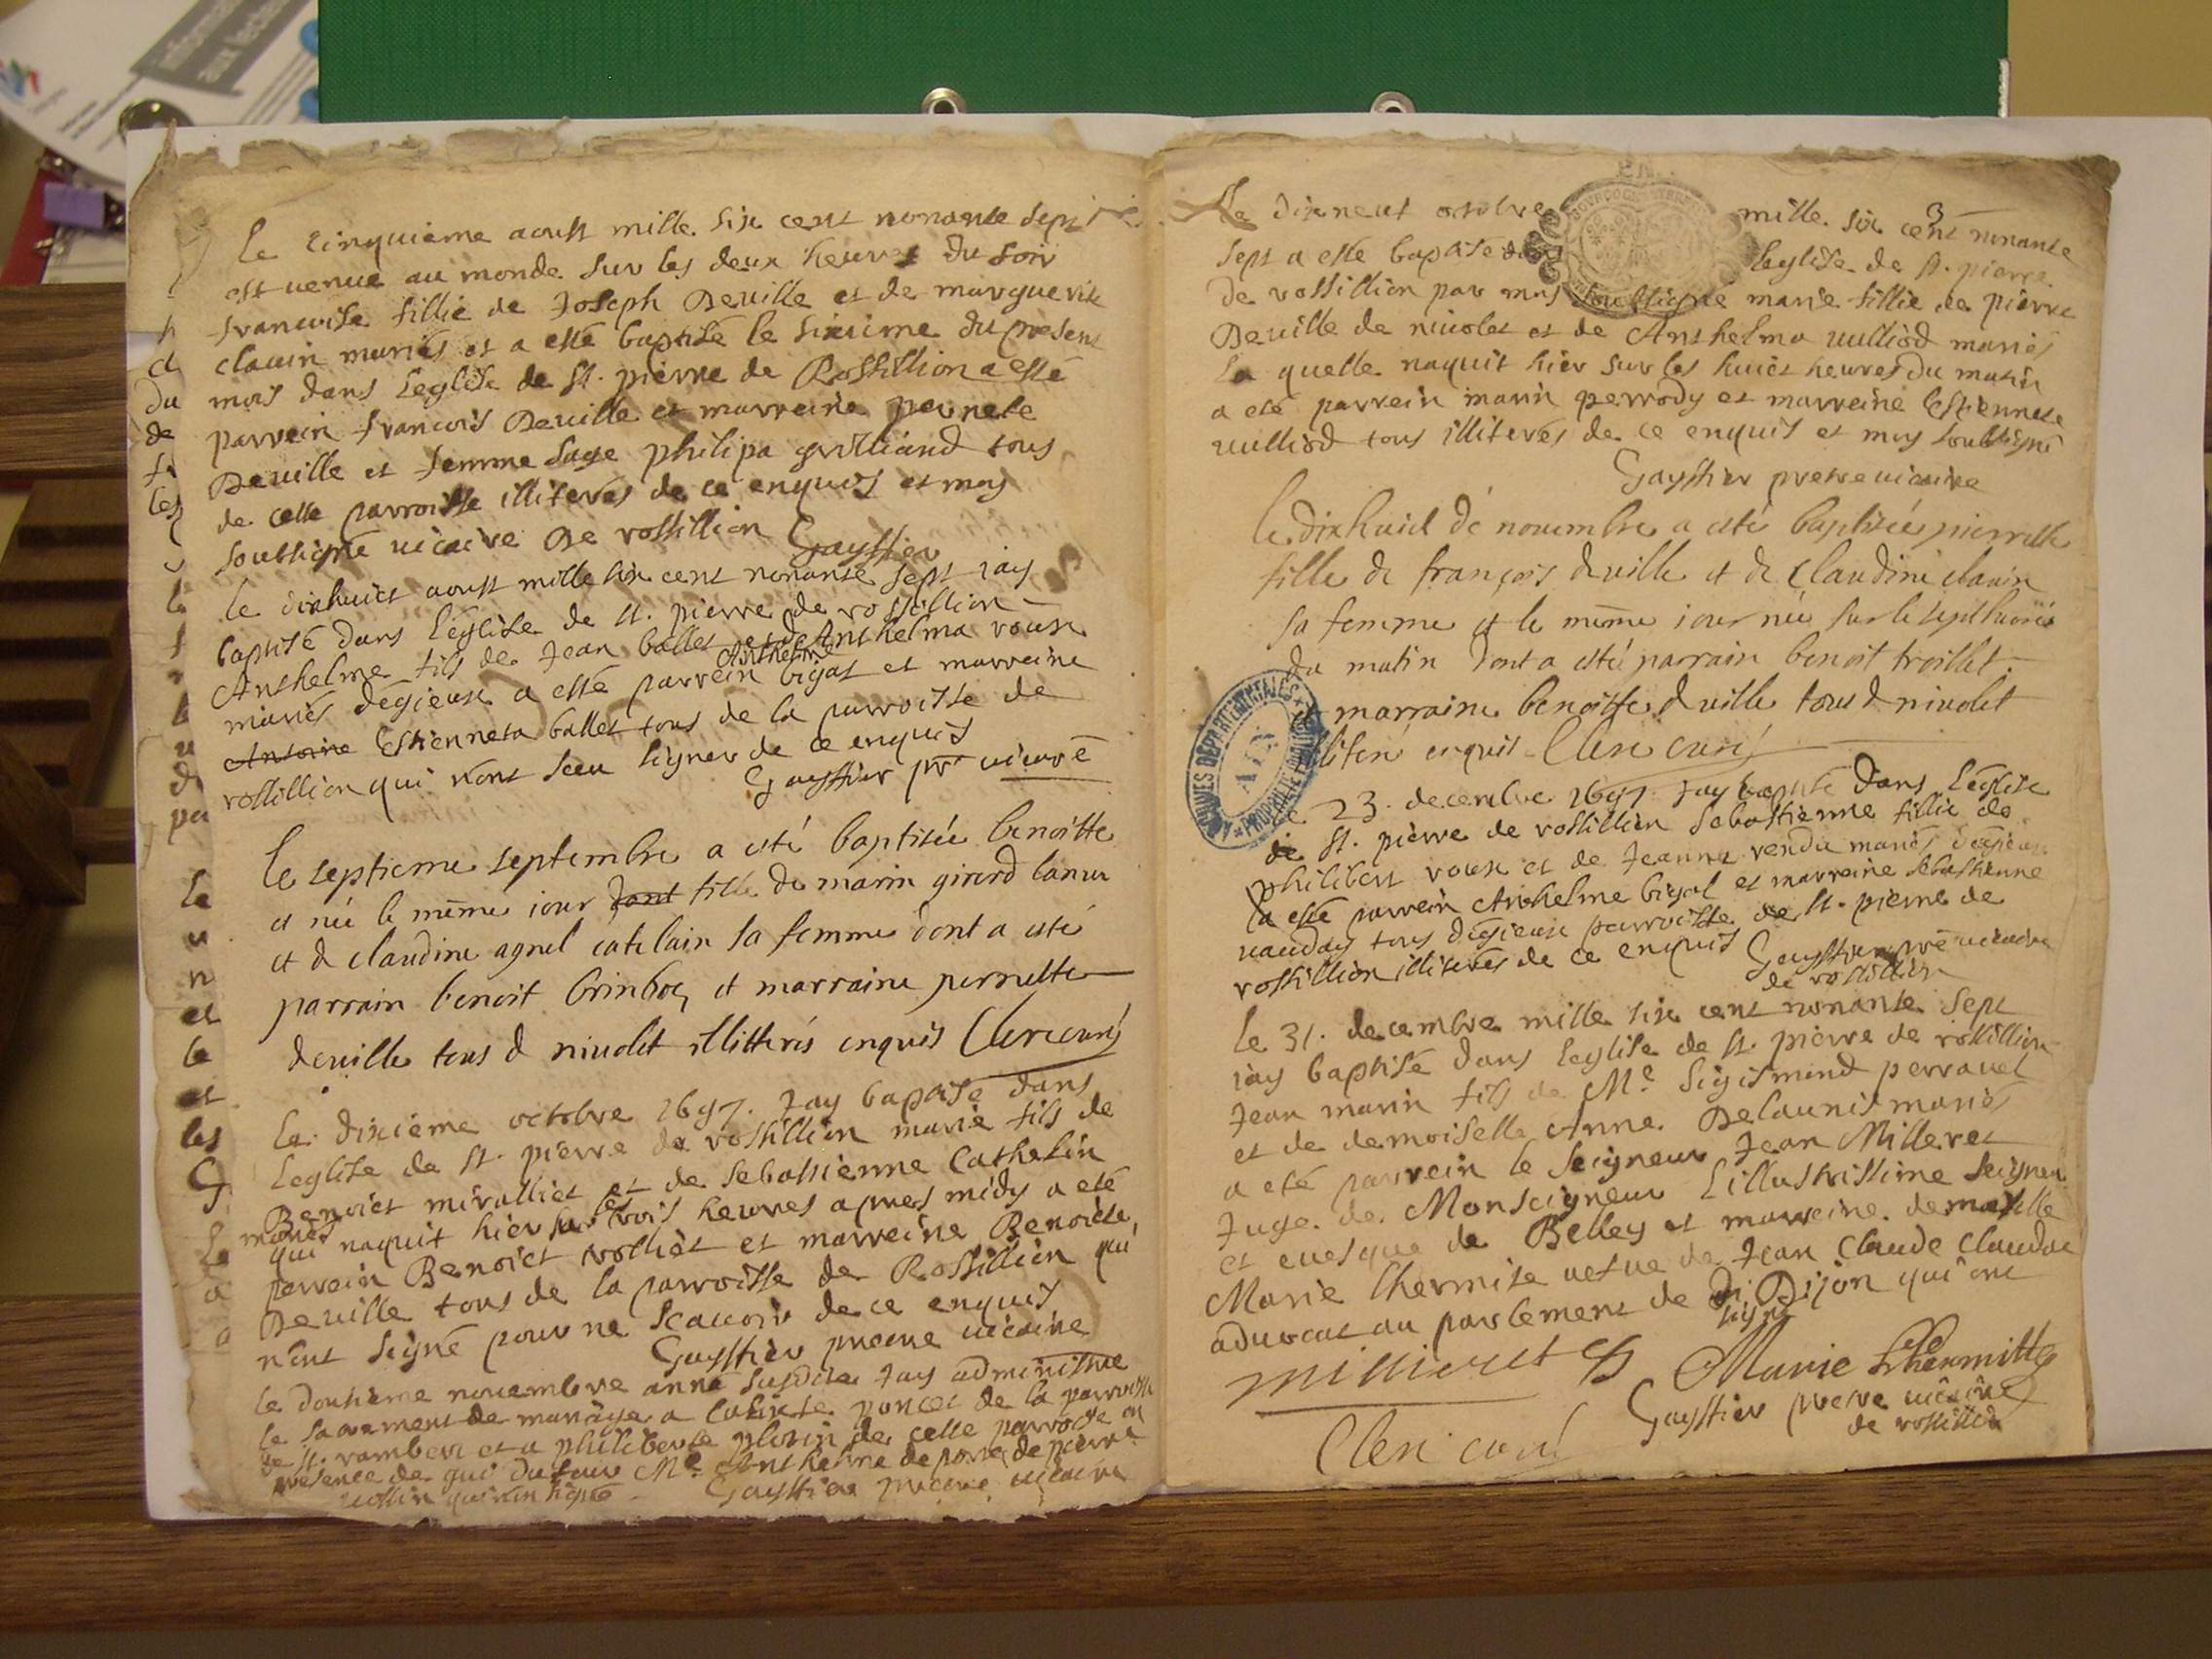 le cinquieme aoust mille six cent nonante sept
est venue au monde sur les deux heures du soir
francoise fillie de Joseph Deville et de marguerite
clavin mariés et a esté baptisé le sixieme du present
mois dans leglise de st. pierre de Rossillion a esté
parrein francois Deville et marreine pernete
Deville et femme sage philipa guilliand tous
de celle parroisse illiterés de ce enquis et moy
soubsigné vicaire De rossillion Gaysthier
le dixhuict aoust mille six cent nonante sept iay
baptisé dans l'eglise de st. pierre de rossillion
Anthelme fils de Jean ballet et de Anthelma roux
mariés degieux a esté parrein Anthelme bigat et marreine
Antoine Estienneta ballet tous de la parroisse de
rossillion qui n'ont sceu signer de ce enquis
Gaysthier ptr vicaire
le septieme septembre a esté baptisée benoitte
et née le mème iour dont fille de marin girerd
et d claudine agnel catelain sa femme dont a esté
parrain benoit et marraine pernette
deville tous d nivolet illitterés enquis Clerc curé
Le dixième octobre 1697. Jay baptisé dans
Leglise de st. pierre de rossillion marie fils de
Benoict miralliet et de Sebastienne Cathelin
mariés
qui naquit hier sur les trois heures apres midy a eté
parrein Benoict volliet et marreine Benoicte
Deville tous de la parroisse de Rossillion qui
n'ont signé pour ne scavoir de ce enquis
Gaysthier pretre vicaire
le douzième novembre anné susdite Jay administré
le sacrement de mariage a poncet de la parroisse
de st. rambert et a philiberte de celle parroisse en
presence de Me Anthelme de pierre
Gaysthier pretre vicaire
3
Le dixneuf octobre mille six cent nonante
sept a esté baptisé dans leglise de st. pierre
De rossillion par moy soubsigné marie fillie de pierre
Deville de nivolet et de Anthelma vulliod mariés
La quelle naquit hier sur les huict heures du matin
a eté parrein marin perrody et marreine Estiennete
vulliod tous illiterés de ce enquis et moy soubsigné
Gaysthier pretre vicaire
le dixhuict de novembre a esté baptisée pierrette
fille de françois deville et de claudine clavin
sa femme et le mème iour née sur le sept heures
du matin dont a esté parrain benoit troillet
et marraine benoiste d ville tous d nivolet
illiteré enquis Clerc curé
ARCHIVES DÉPARTEMENTALES
AIN
PROPRIÉTÉ PUBLIQUE
Le 23. decembre 1697. Jay baptisé dans l'église
de st. pierre de rossillion Sebastienne fillie de
philibert roux et de Jeanne vendu mariés degieux
a esté parrein Anthelme bigat et marreine sebastienne
vauday tous degieux parroisse de st. pierre de
rossillion illiterés de ce enquis Gaysthier pre vicaire
de rossillion
le 31. decembre mille six cent nonante sept
iay baptisé dans leglise de st. pierre de rossillion
Jean marin fils de Me. Sigismond perravel
et de demoiselle Anne Delaunis mariés
a eté parrein le Seigneur Jean Milleret
Juge de Monseigneur L'illustrissime seigneur
et evesque de Belley et marreine demoiselle
Marie Lhermite vefve de Jean Claude Claudac
advocat au parlement de Di Dijon qui ont
signé
Millieret Marie Lhermitte
Gaysthier pretre vicaire
de rossillion
Clerc curé